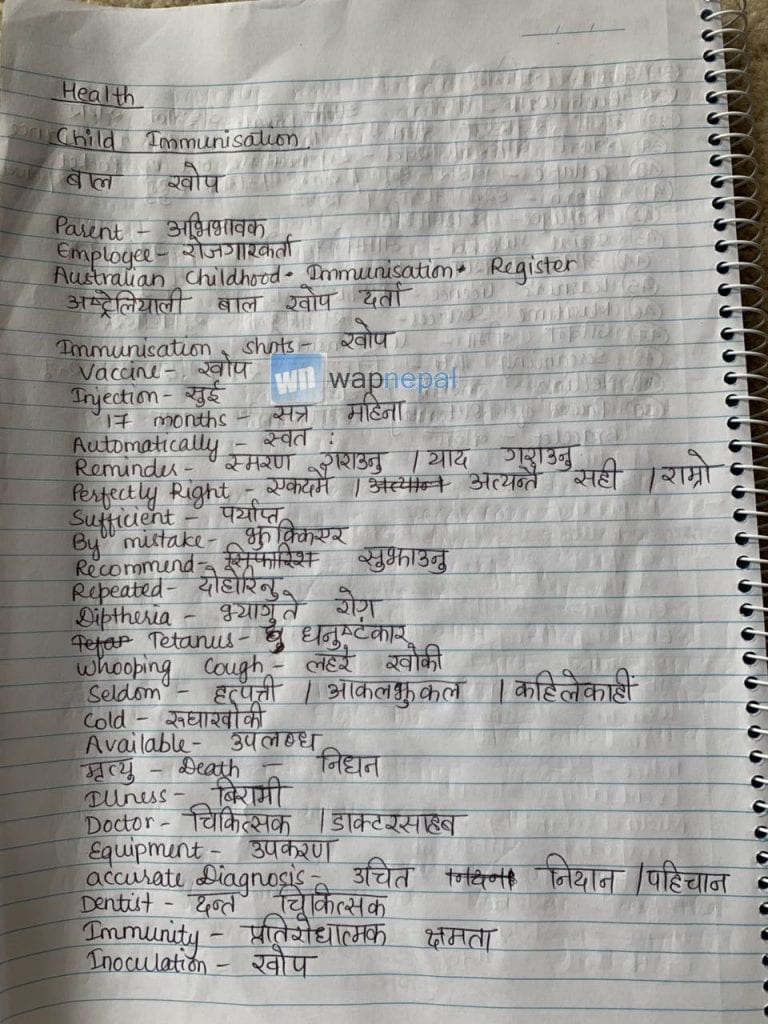 Health
Child Immunisation
बाल खोप
Parent - अभिभावक
Employee - रोजगारकर्ता
Australian Childhood Immunisation Register
अष्ट्रेलियाली बाल खोप दर्ता
Immunisation shots - खोप
Vaccine - खोप
wn wapnepal
Injection - सुई
17 months - सत्र महिना
Automatically - स्वत :
Reminder - स्मरण गराउनु / याद गराउनु
Perfectly Right - एकदमै / अत्यान्त अत्यन्तै सही / राम्रो
Sufficient - पर्याप्त
By mistake - झुक्किएर
Recommend - सिफारिश सुझाउनु
Repeated - दोहोरिनु
Diptheria - भ्यागुते रोग
Tetanus - धनुष्टंकार
Whooping Cough - लहरे खोकी
Seldom - हत्पत्ती / आकलझुकल / कहिलेकाहीं
Cold - रुघाखोकी
Available - उपलब्ध
मृत्यु - Death - निधन
Illness - बिरामी
Doctor - चिकित्सक / डाक्टरसाहब
Equipment - उपकरण
accurate Diagnosis - उचित निदान / पहिचान
Dentist - दन्त चिकित्सक
Immunity - प्रतिरोधात्मक क्षमता
Inoculation - खोप